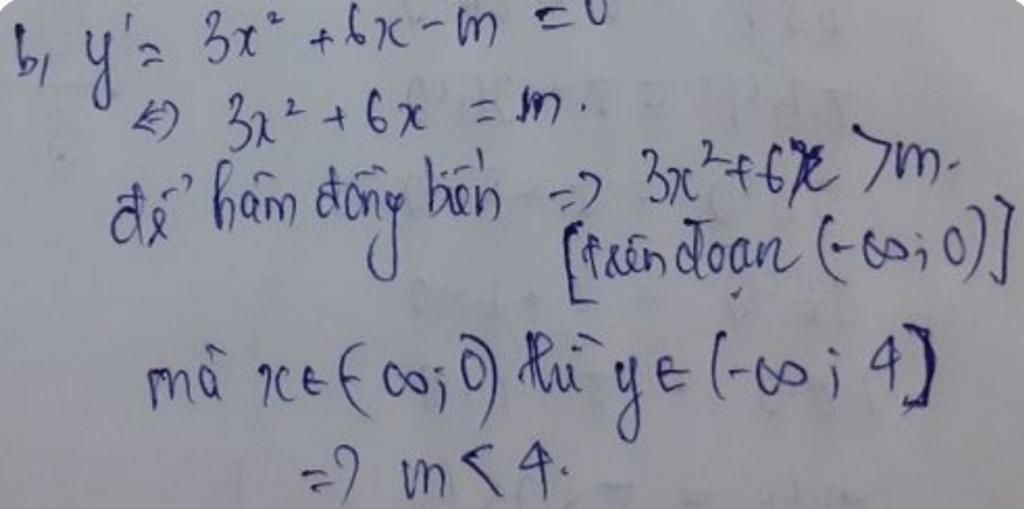 b, y' = 3x² + 6x - m = 0
<=> 3x² + 6x = m.
để hàm đồng biến => 3x² + 6x > m.
[trên đoạn (-∞; 0)]
mà x ∈ (-∞; 0) thì y ∈ (-∞; 4]
=> m < 4.